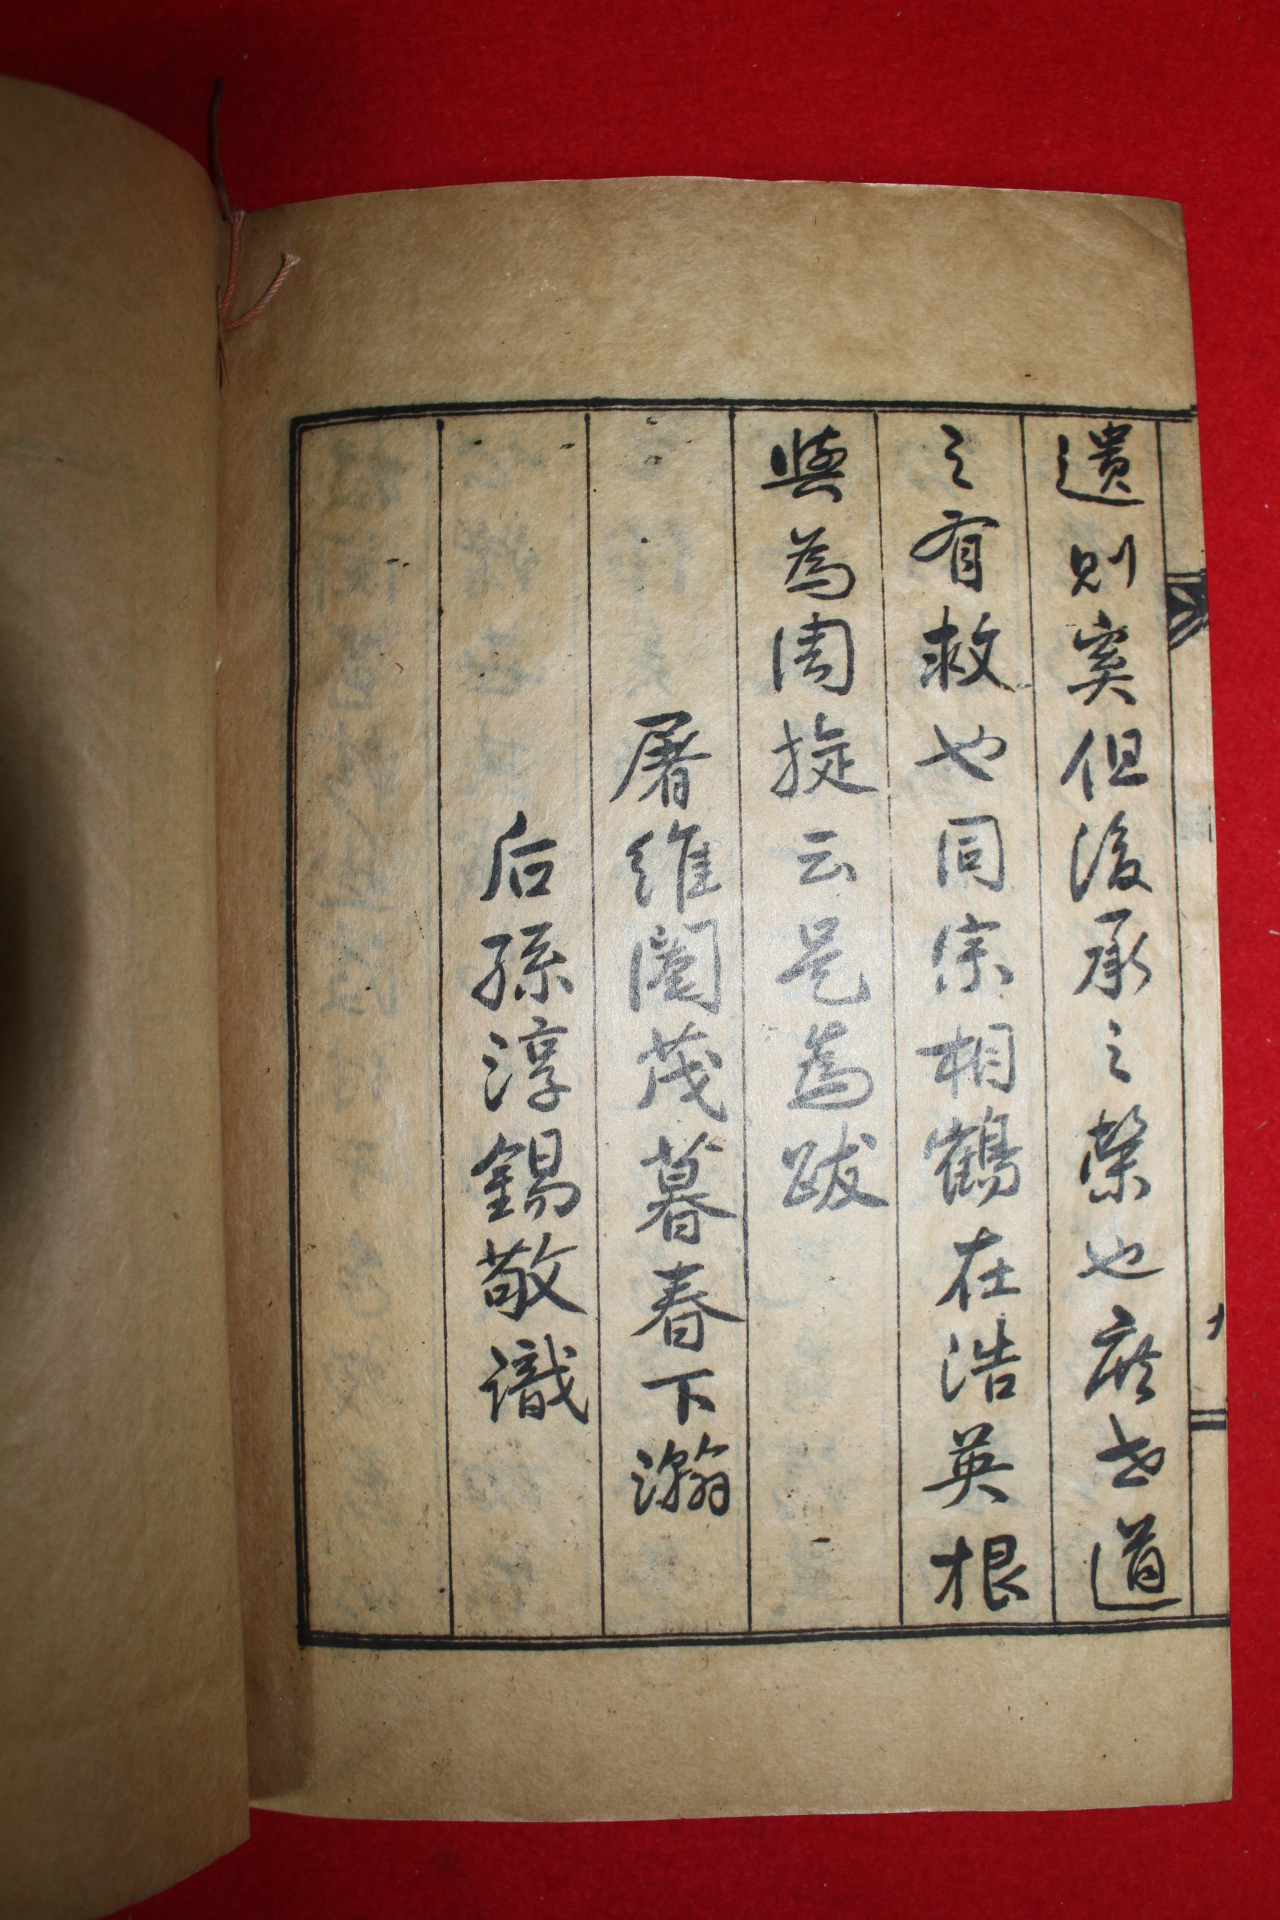 遺則奚但後承之榮也庶世道
之有救也同宗相鶴在浩英根
與為周旋云是為跋
屠維閹茂暮春下瀚
后孫淳錫敬識